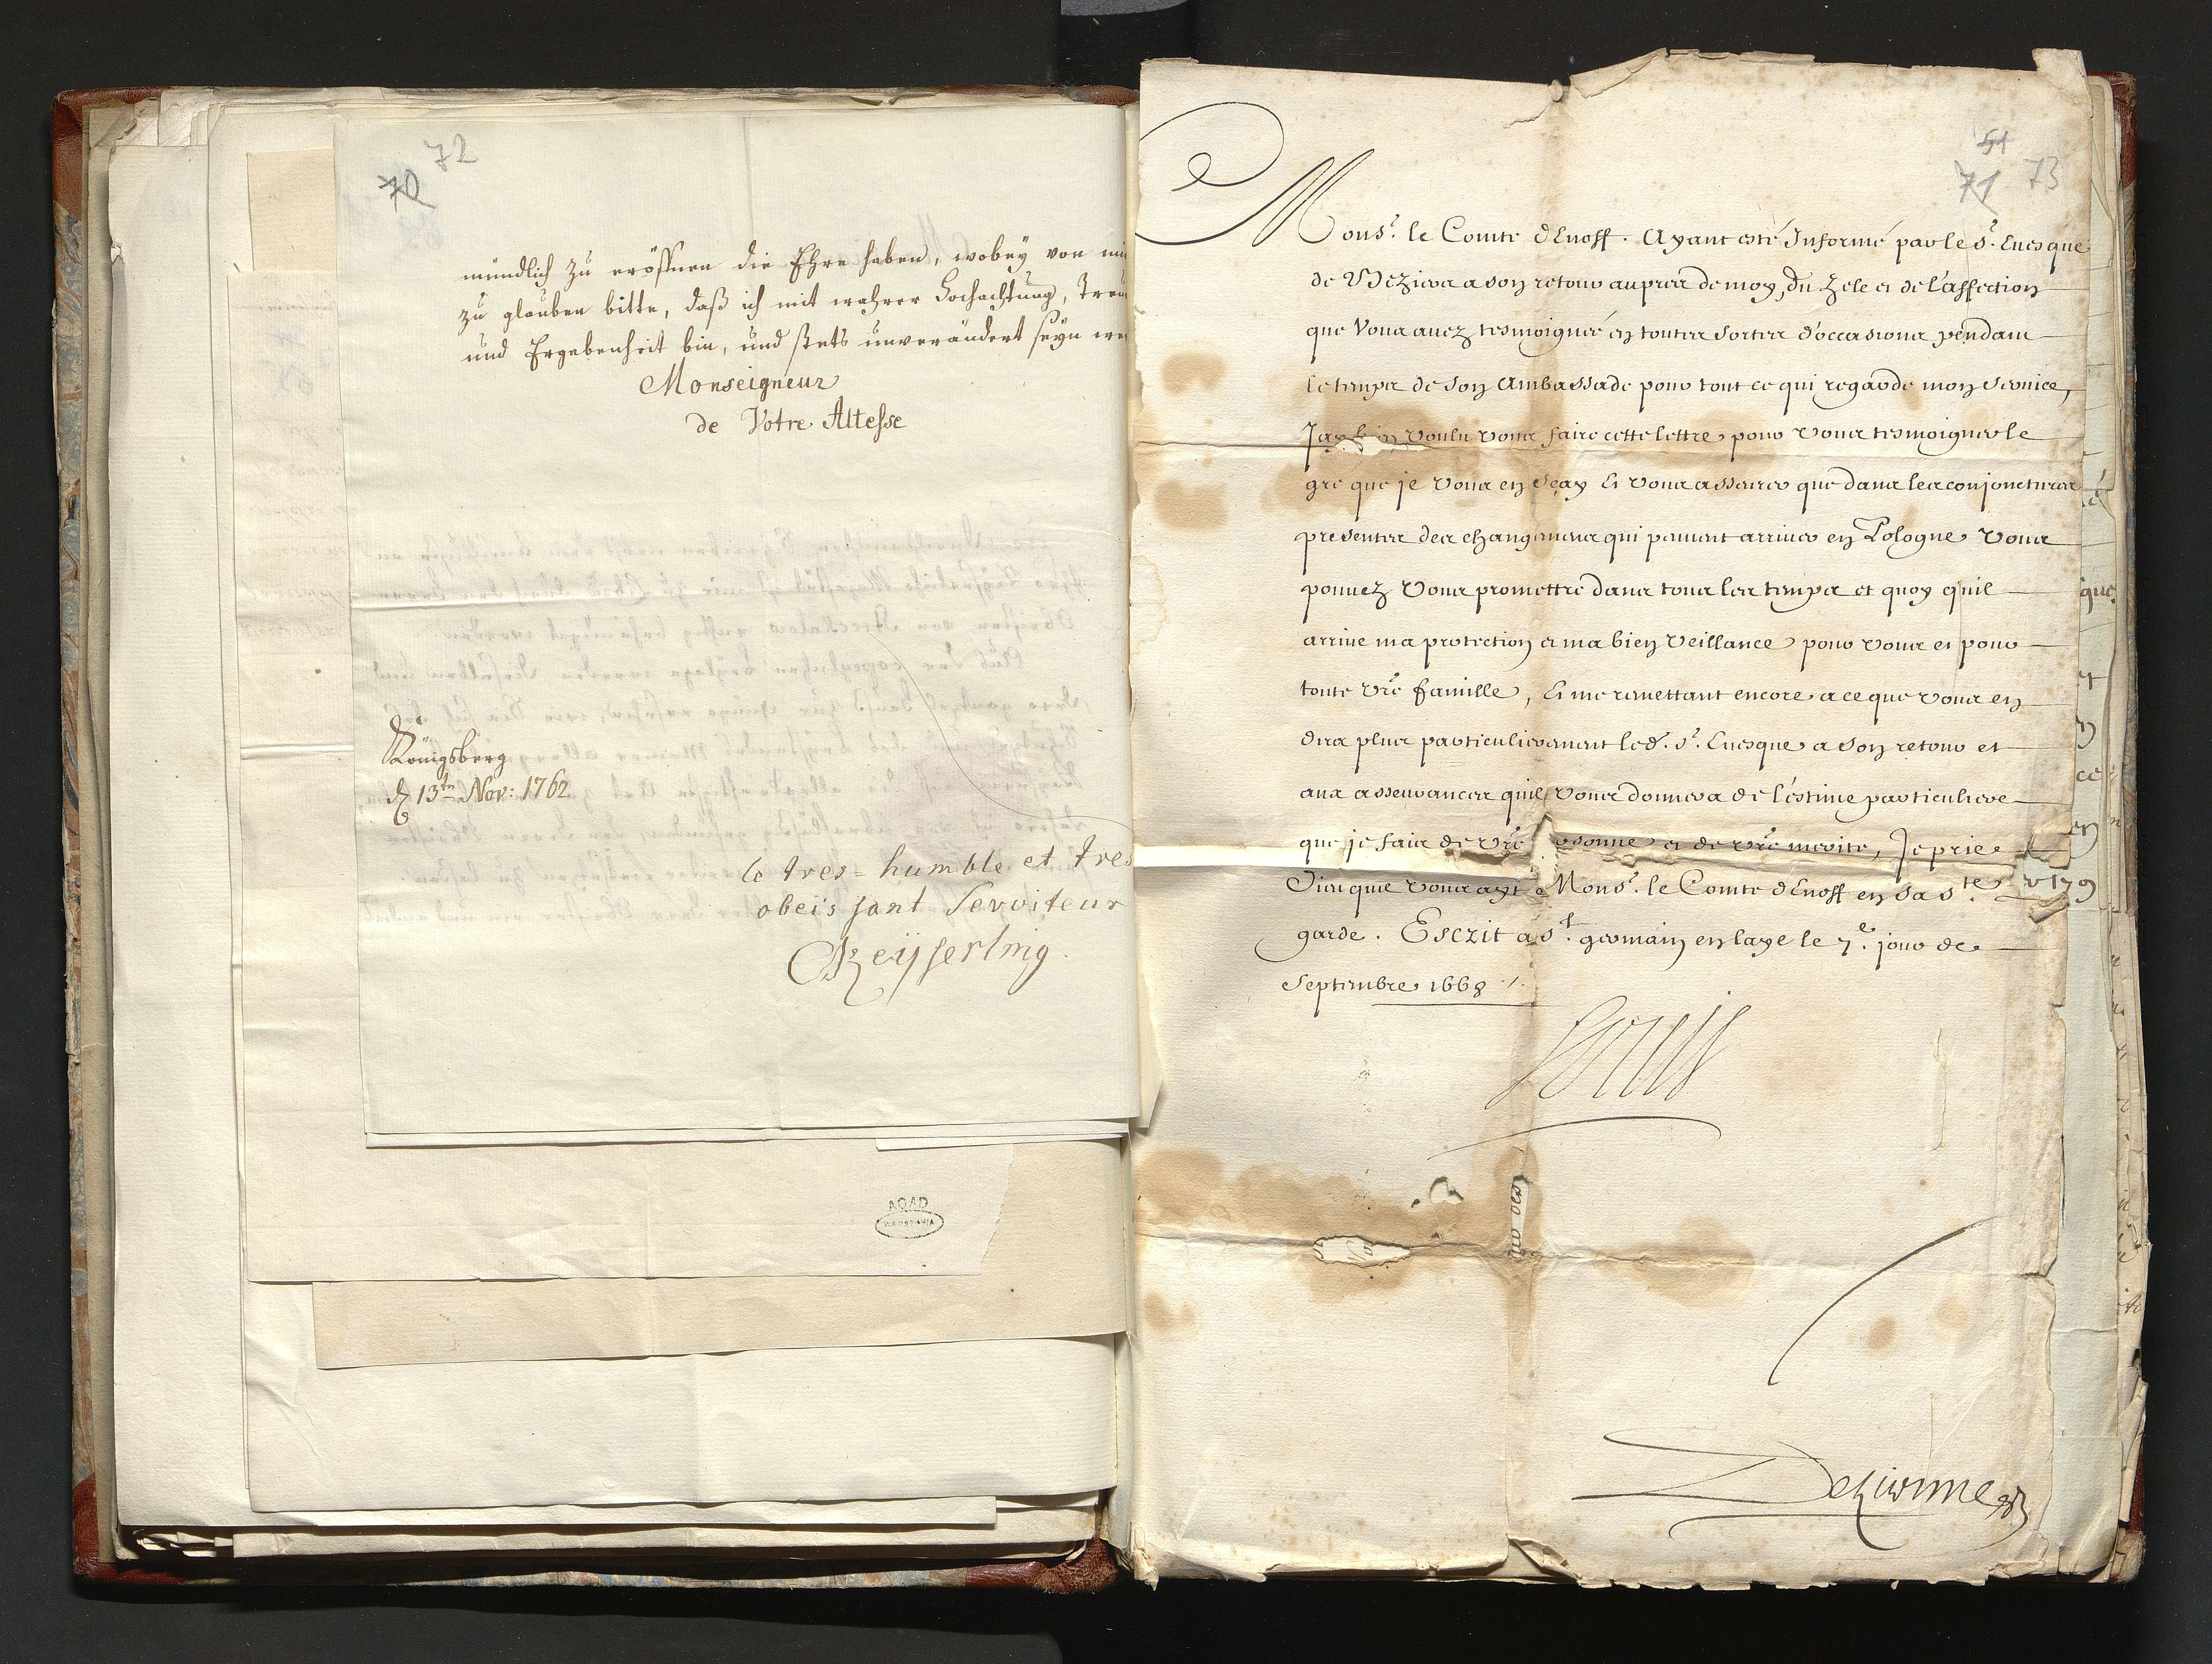 72
70
mündlich zu eröffnen die Ehre haben, wobey von mir
zu glauben bitte, daß ich mit wahrer Hochachtung, Treu
und Ergebenheit bin, und stets unverändert seyn wer
Monseigneur
de Votre Altesse
Königsberg
d 13ten Nov: 1762
le tres=humble et tres
obeissant Serviteur
Keyserling
AGAD
WARSZAWA
51
71 73
Monsr. le Comte d'Enoff. Ayant esté Informé par le Sr. Euesque
de Beziers a son retour aupres de moy, du Zele et de l'affection
que Vous auez tesmoigneé en toutes Sortes d'occasions pendant
le temps de son Ambassade pour tout ce qui regarde mon Seruice,
J'ay bien Voulu vous faire cette lettre pour vous tesmoigner le
gré que je vous en sçay Et vous asseurer que dans les conjonctures
presentes des changemens qui peuuent arriuer en Pologne vous
pouuez Vous promettre dans tous les temps et quoy quil
arriue ma protection et ma bien Veillance pour vous et pour
toute vre famille, Et me remettant encore a ce que vous en
dira plus particulierement led. Sr. Euesque a son retour et
aux asseurances quil vous donnera de l'estime particuliere
que je fais de vre personne et de vre merite, Je prie
Dieu quil vous ayt Monsr. le Comte d'Enoff en sa Ste
garde. Escrit a St. germain en laye le 7e. jour de
Septembre 1668
Louis
DeLionne